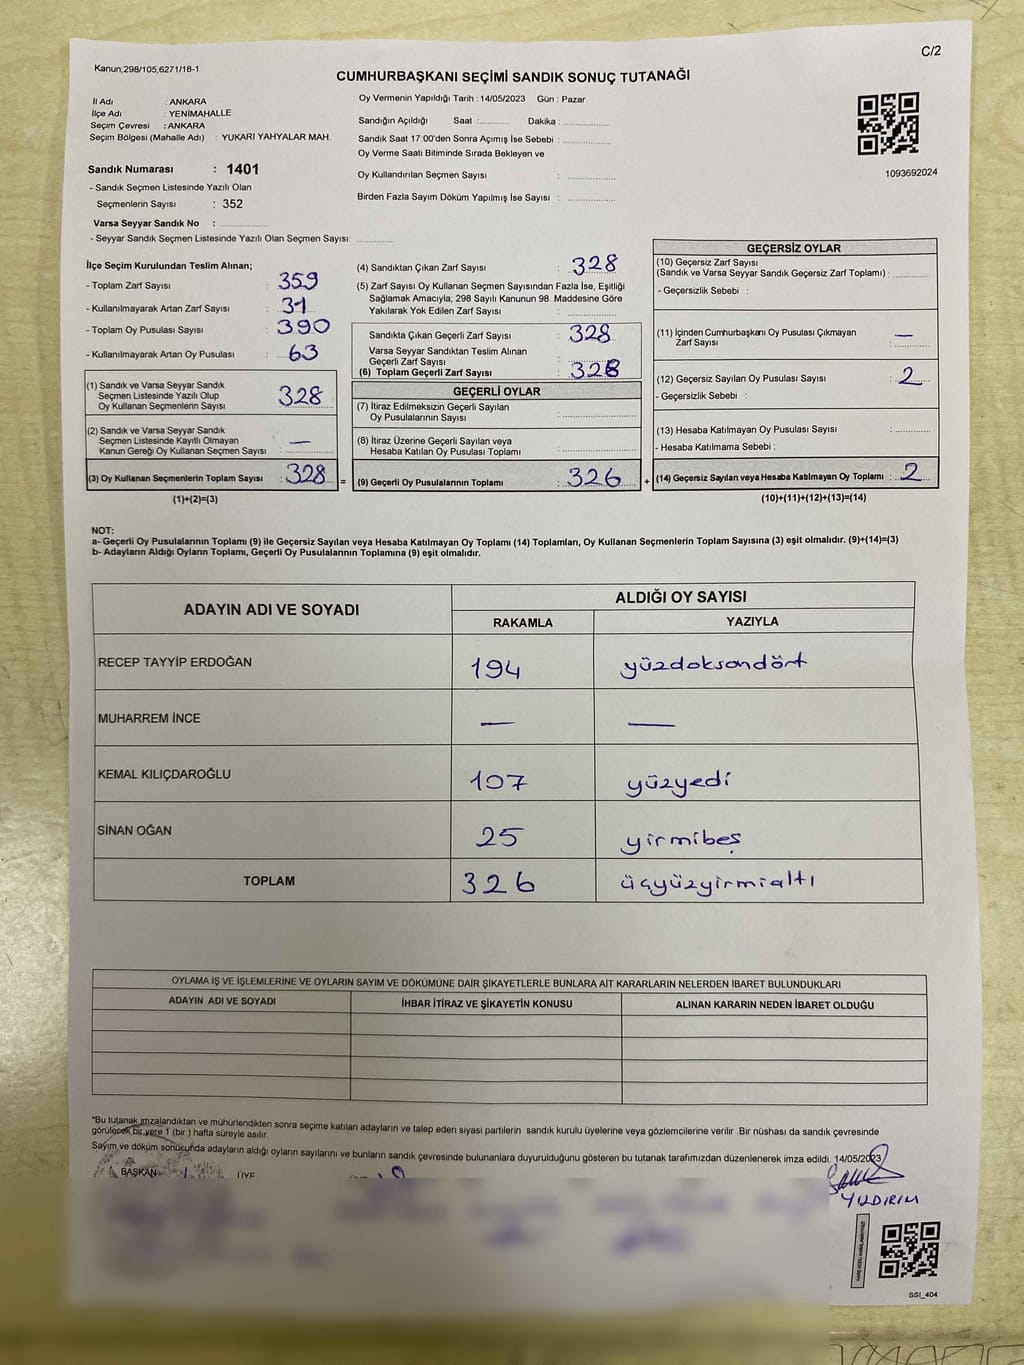 C/2
Kanun;298/105;6271/18-1
CUMHURBAŞKANI SEÇİMİ SANDIK SONUÇ TUTANAĞI
İl Adı : ANKARA
İlçe Adı : YENİMAHALLE
Seçim Çevresi : ANKARA
Seçim Bölgesi (Mahalle Adı) : YUKARI YAHYALAR MAH.
Sandık Numarası : 1401
- Sandık Seçmen Listesinde Yazılı Olan
Seçmenlerin Sayısı : 352
Varsa Seyyar Sandık No :
- Seyyar Sandık Seçmen Listesinde Yazılı Olan Seçmen Sayısı:
Oy Vermenin Yapıldığı Tarih : 14/05/2023 Gün : Pazar
Sandığın Açıldığı Saat : Dakika :
Sandık Saat 17:00'den Sonra Açımış İse Sebebi :
Oy Verme Saati Bitiminde Sırada Bekleyen ve
Oy Kullandırılan Seçmen Sayısı :
Birden Fazla Sayım Döküm Yapılmış İse Sayısı :
1093692024
İlçe Seçim Kurulundan Teslim Alınan;
- Toplam Zarf Sayısı : 359
- Kullanılmayarak Artan Zarf Sayısı : 31
- Toplam Oy Pusulası Sayısı : 390
- Kullanılmayarak Artan Oy Pusulası : 63
(1) Sandık ve Varsa Seyyar Sandık
Seçmen Listesinde Yazılı Olup
Oy Kullanan Seçmenlerin Sayısı : 328
(2) Sandık ve Varsa Seyyar Sandık
Seçmen Listesinde Kayıtlı Olmayan
Kanun Gereği Oy Kullanan Seçmen Sayısı : —
(3) Oy Kullanan Seçmenlerin Toplam Sayısı : 328 =
(1)+(2)=(3)
(4) Sandıktan Çıkan Zarf Sayısı : 328
(5) Zarf Sayısı Oy Kullanan Seçmen Sayısından Fazla İse, Eşitliği
Sağlamak Amacıyla, 298 Sayılı Kanunun 98. Maddesine Göre
Yakılarak Yok Edilen Zarf Sayısı :
Sandıkta Çıkan Geçerli Zarf Sayısı : 328
Varsa Seyyar Sandıktan Teslim Alınan
Geçerli Zarf Sayısı :
(6) Toplam Geçerli Zarf Sayısı : 328
GEÇERLİ OYLAR
(7) İtiraz Edilmeksizin Geçerli Sayılan
Oy Pusulalarının Sayısı :
(8) İtiraz Üzerine Geçerli Sayılan veya
Hesaba Katılan Oy Pusulası Toplamı :
(9) Geçerli Oy Pusulalarının Toplamı : 326 +
GEÇERSİZ OYLAR
(10) Geçersiz Zarf Sayısı
(Sandık ve Varsa Seyyar Sandık Geçersiz Zarf Toplamı) :
- Geçersizlik Sebebi :
(11) İçinden Cumhurbaşkanı Oy Pusulası Çıkmayan
Zarf Sayısı : —
(12) Geçersiz Sayılan Oy Pusulası Sayısı : 2
- Geçersizlik Sebebi :
(13) Hesaba Katılmayan Oy Pusulası Sayısı :
- Hesaba Katılmama Sebebi :
(14) Geçersiz Sayılan veya Hesaba Katılmayan Oy Toplamı : 2
(10)+(11)+(12)+(13)=(14)
NOT:
a- Geçerli Oy Pusulalarının Toplamı (9) ile Geçersiz Sayılan veya Hesaba Katılmayan Oy Toplamı (14) Toplamları, Oy Kullanan Seçmenlerin Toplam Sayısına (3) eşit olmalıdır. (9)+(14)=(3)
b- Adayların Aldığı Oyların Toplamı, Geçerli Oy Pusulalarının Toplamına (9) eşit olmalıdır.
ADAYIN ADI VE SOYADI
ALDIĞI OY SAYISI
RAKAMLA YAZIYLA
RECEP TAYYİP ERDOĞAN 194 yüzdoksandört
MUHARREM İNCE — —
KEMAL KILIÇDAROĞLU 107 yüzyedi
SİNAN OĞAN 25 yirmibeş
TOPLAM 326 üçyüzyirmialtı
OYLAMA İŞ VE İŞLEMLERİNE VE OYLARIN SAYIM VE DÖKÜMÜNE DAİR ŞİKAYETLERLE BUNLARA AİT KARARLARIN NELERDEN İBARET BULUNDUKLARI
ADAYIN ADI VE SOYADI İHBAR İTİRAZ VE ŞİKAYETİN KONUSU ALINAN KARARIN NEDEN İBARET OLDUĞU
*Bu tutanak imzalandıktan ve mühürlendikten sonra seçime katılan adayların ve talep eden siyasi partilerin sandık kurulu üyelerine veya gözlemcilerine verilir .Bir nüshası da sandık çevresinde
görülecek bir yere 1 (bir ) hafta süreyle asılır.
Sayım ve döküm sonucunda adayların aldığı oyların sayılarını ve bunların sandık çevresinde bulunanlara duyurulduğunu gösteren bu tutanak tarafımızdan düzenlenerek imza edildi. 14/05/2023
BAŞKAN ÜYE
YILDIRIM
SSI_404